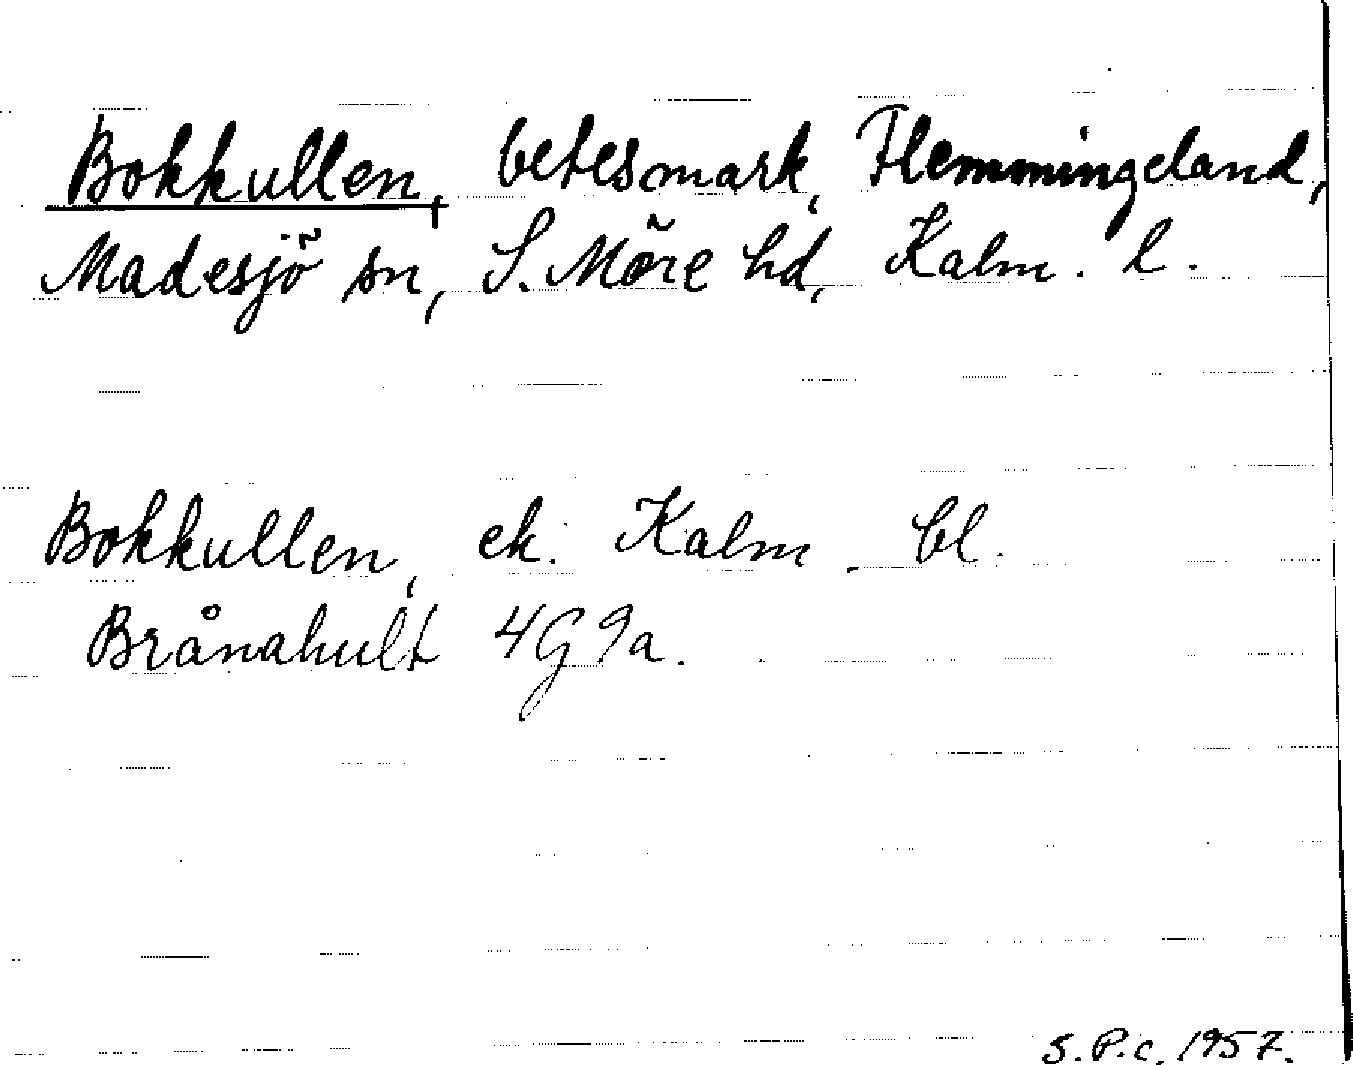 Bokkullen, betesmark, Flemmingeland,
Madesjö sn, S. Möre hd, Kalm. l.
Bokkullen, ek. Kalm. bl.
Brånahult 4G 9a.
S.P.C. 1957.